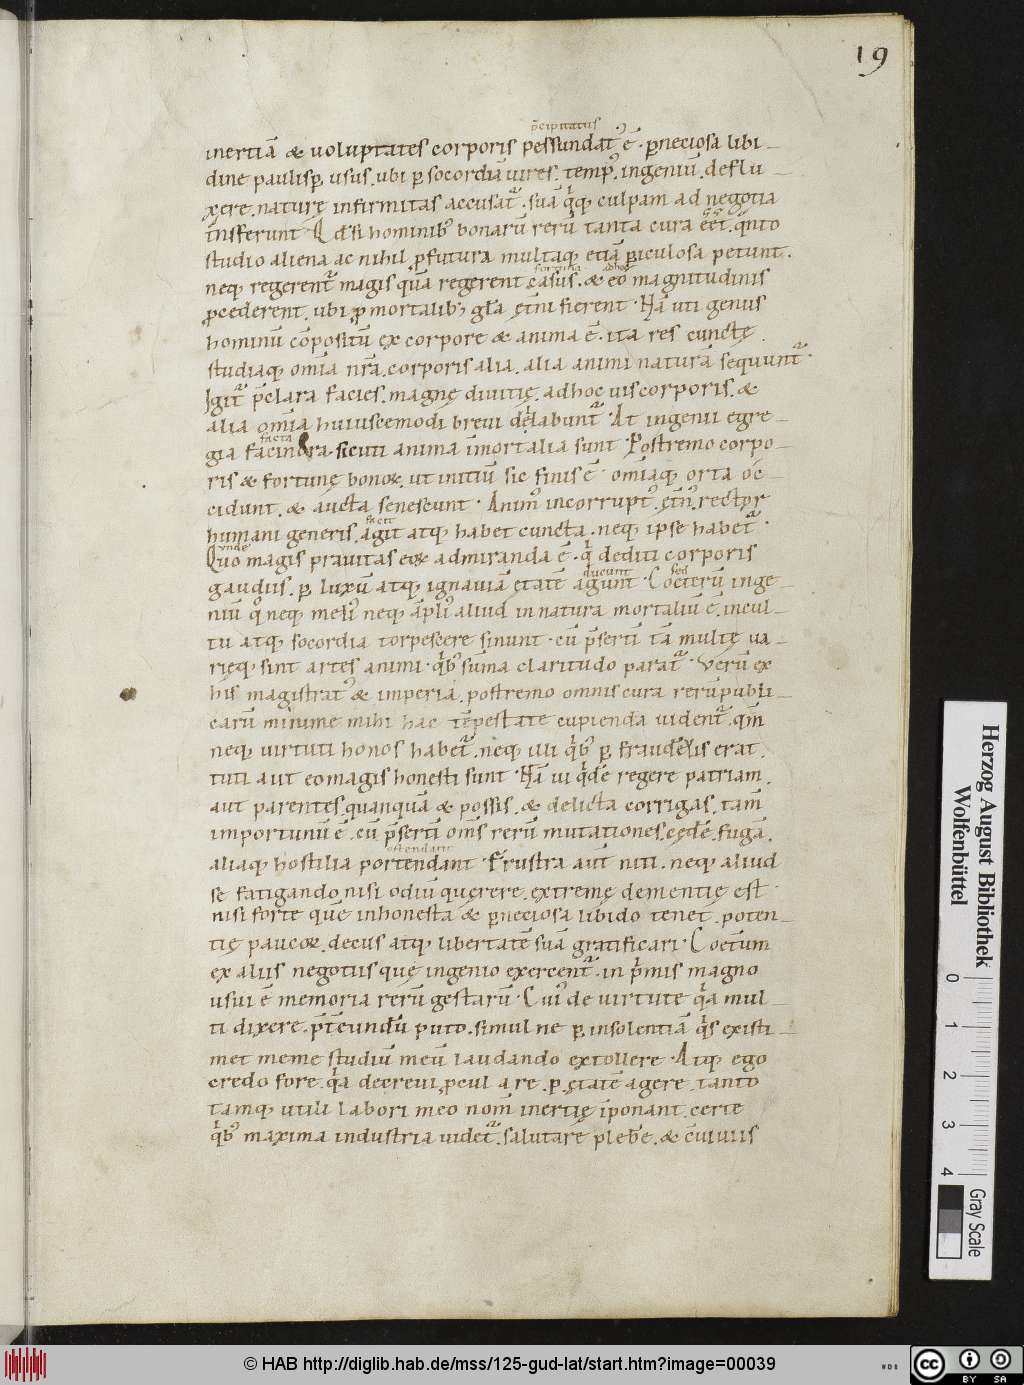 19
p̄cipitatus
inertiā & uoluptates corporis pessundat᾽ ē · ꝑneciosa libi
dine paulisꝑ usus. ubi ꝑ socordiā uires. temp᾽. ingeniū. deflu
xere. naturę infirmitas accusat᷑. suā qͥq; culpam ad negotia
t̄nsferunt Qđ si hominib᾽ bonarū rerū tanta cura eēt. qͣnto
studio aliena ac nihil ꝓfutura multaq; etiā ꝑiculosa petunt.
neq; regerent᷑ magis quā regerent casus. & eo magnitudinis
fortuna adhoc
ꝓcederent. ubi ꝓ mortalib᾽ gl̄a ęt̄ni fierent · Nā uti genus
hominū cōpositū ex corpore & anima ē. ita res cunctę.
studiaq; omīa nr̄a. corporis alia. alia animi naturā sequunt᷑.
Igit᷑ p̄clara facies. magnę diuitię. adhoc uis corporis. &
alia omīa huiuscemodi breui dilabunt᷑ · At ingenii egre
facta
gia facinora. sicuti anima īmortalia sunt · Postremo corpo
ris & fortunę bonoꝝ. ut initiū sic finis ē · omīaq; orta oc̄
cidunt. & aucta senescunt · Anim᾽ incorrupt᾽. ęt̄n᾽. rector
facit
humani generis. agit atq; habet cuncta. neq; ipse habet᷑ ·
Vnde
Quo magis prauitas eoꝝ admiranda ē · qͥ dediti corporis
gaudiis. ꝑ luxū atq; ignauiā ętatē agunt · Coeterū inge
ducunt sed
niū qͦ neq; meli᾽ neq; āpli᾽ aliud in natura mortaliū ē. incul
tu atq; socordia torpescere sinunt · cū p̄serti tā multę ua
rięq; sint artes animi · qͥb᾽ sūma claritudo parat᷑ · Verū ex
his magistrat᾽ & imperia. postremo omnis cura rerū publi
carū minime mihi hac tēpestate cupienda uident᷑. qm̄
neq; uirtuti honos habet᷑. neq; illi qͥb᾽ ꝑ fraudē is erat.
tuti aut eo magis honesti sunt · Nā ui qͥdē regere patriam.
aut parentes. quanquā & possis. & delicta corrigas. tam̄
importunū ē. cū p̄serti om̄s rerū mutationes. cędē. fugā.
ostendant
aliaq; hostilia portendant · Frustra aut̄ niti. neq; aliud
se fatigando. nisi odiū quęrere. extremę dementię est ·
nisi forte quē inhonesta & ꝑneciosa libido tenet. poten
tię paucoꝝ. decus atq; libertatē suā gratificari · Coet̄um
ex aliis negotiis quę ingenio exercent᷑. in pͥmis magno
usui ē memoria rerū gestarū · Cui᾽ de uirtute qͥa mul
ti dixere. p̄t̄eundū puto. simul ne ꝑ insolentiā qͥs existi
met meme studiū meū laudando extollere · Atq; ego
credo fore. qͥa decreui ꝓcul a re. p. ętatē agere. tanto
tamq; utili labori meo nom̄ inertię īponant. certe
qͥb᾽ maxima industria uidet᷑. salutare plebē. & c̄uiuiis
Herzog August Bibliothek
Wolfenbüttel
0 1 2 3 4
Gray Scale
© HAB http://diglib.hab.de/mss/125-gud-lat/start.htm?image=00039
WDB
cc BY SA